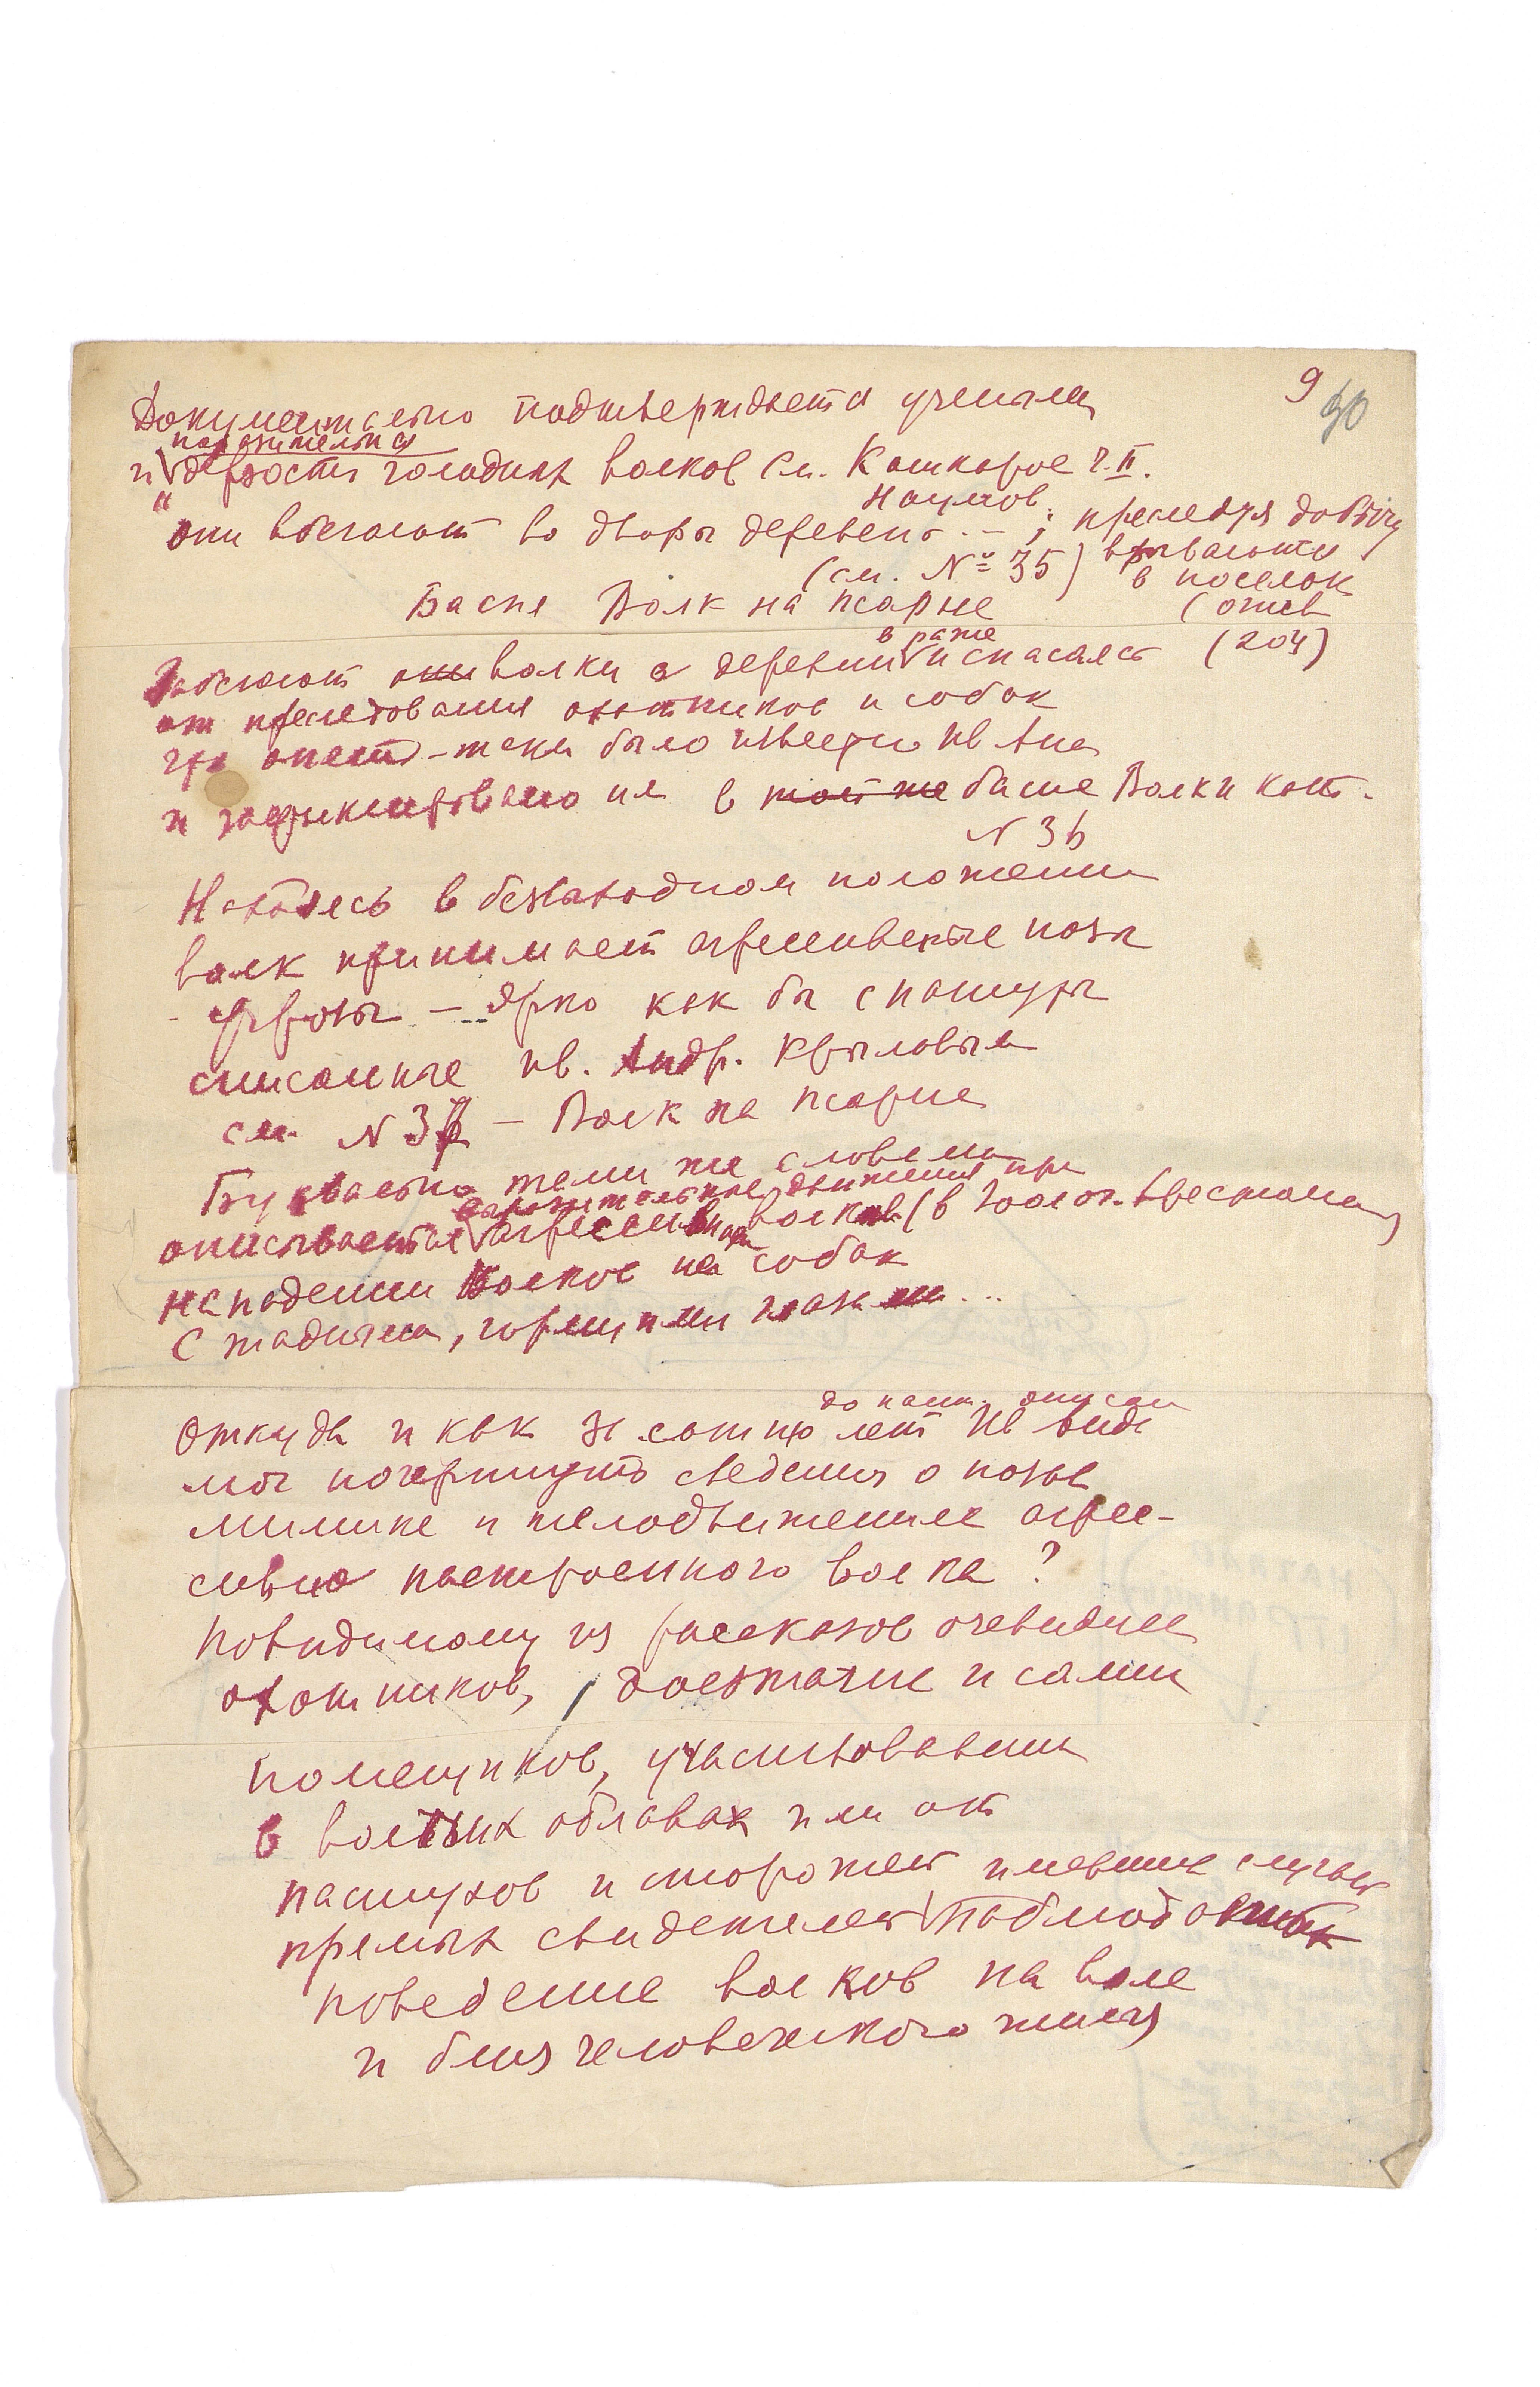 9
90
Документально подтверждается учеными
поразительная
и дерзость голодных волков См. Кашкаров ч. II.
Наумов.
"они вбегают во дворы деревень. — ; преследуя добычу
(см. № 35) врываются
в поселок
Басня Волк на псарне (отсв
в раже (204)
Забегают они волки в деревни и спасаясь
от преследования охотников и собак
что опять-таки было известно Ив Анд
и зафиксировано им в той же басне Волк и кот.
N 36
Находясь в безвыходном положении
волк принимает агрессивные позы
угрозы — ярко как бы с натуры
списанные Ив. Андр. Крыловым
см. N 37 — Волк на псарне
Буквально теми же словами
выразительные движения при
описываются агрессивного волков (в Золог. хрестомат
нападении волков на собак
С горящими глазами...
до наш. описан
Откуда и как за сотню лет Ив Анд
мог почерпнуть сведения о позе
мимике и телодвижениях агрес-
сивно настроенного волка?
Повидимому из рассказов очевидцев
охотников, доезжачих и самих
помещиков, участвовавших
в волчьих облавах или от
пастухов и сторожей имевших случай
прямых свидетелей наблюдавших
поведение волков на воле
и близ человеческого жилья